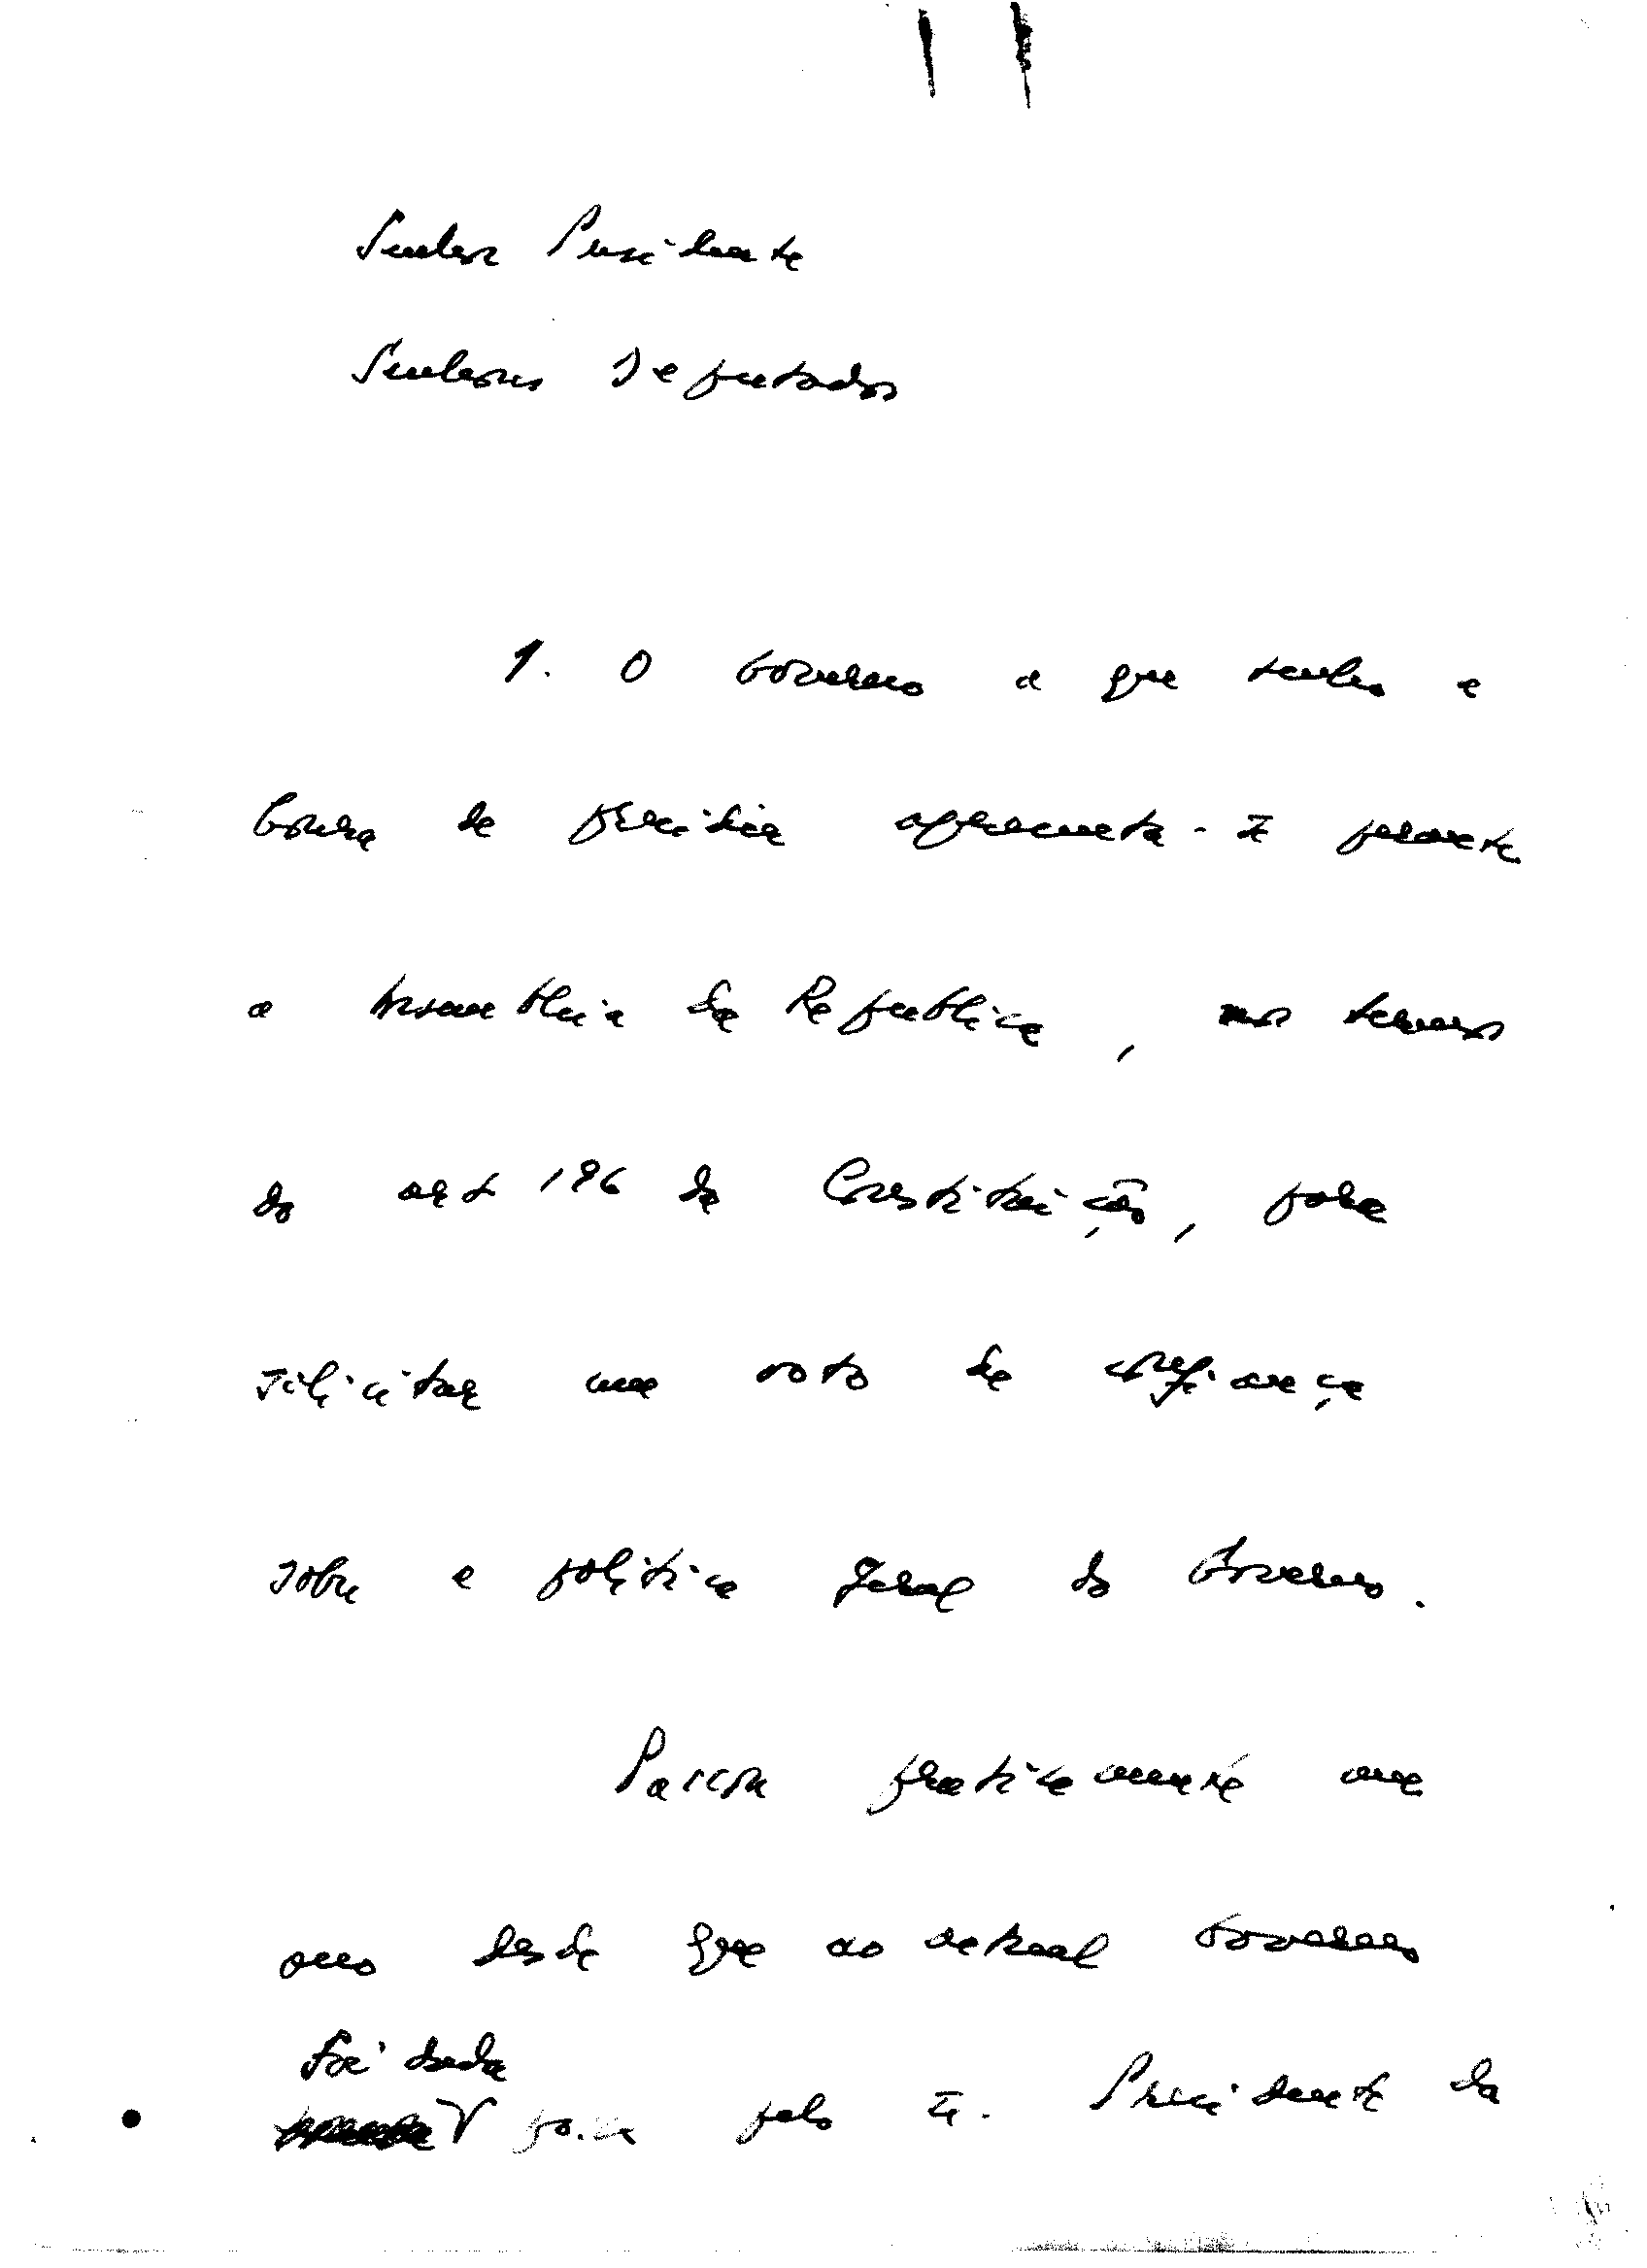 Senhor Presidente
Senhores Deputados
1. O Governo a que tenho a
honra de presidir apresenta-se perante
a Assembleia da República, nos termos
do art 196 da Constituição, para
solicitar um voto de confiança
sobre a política geral do Governo.
Passou praticamente um
ano desde que ao actual Governo
foi dada
posse pelo Sr. Presidente da